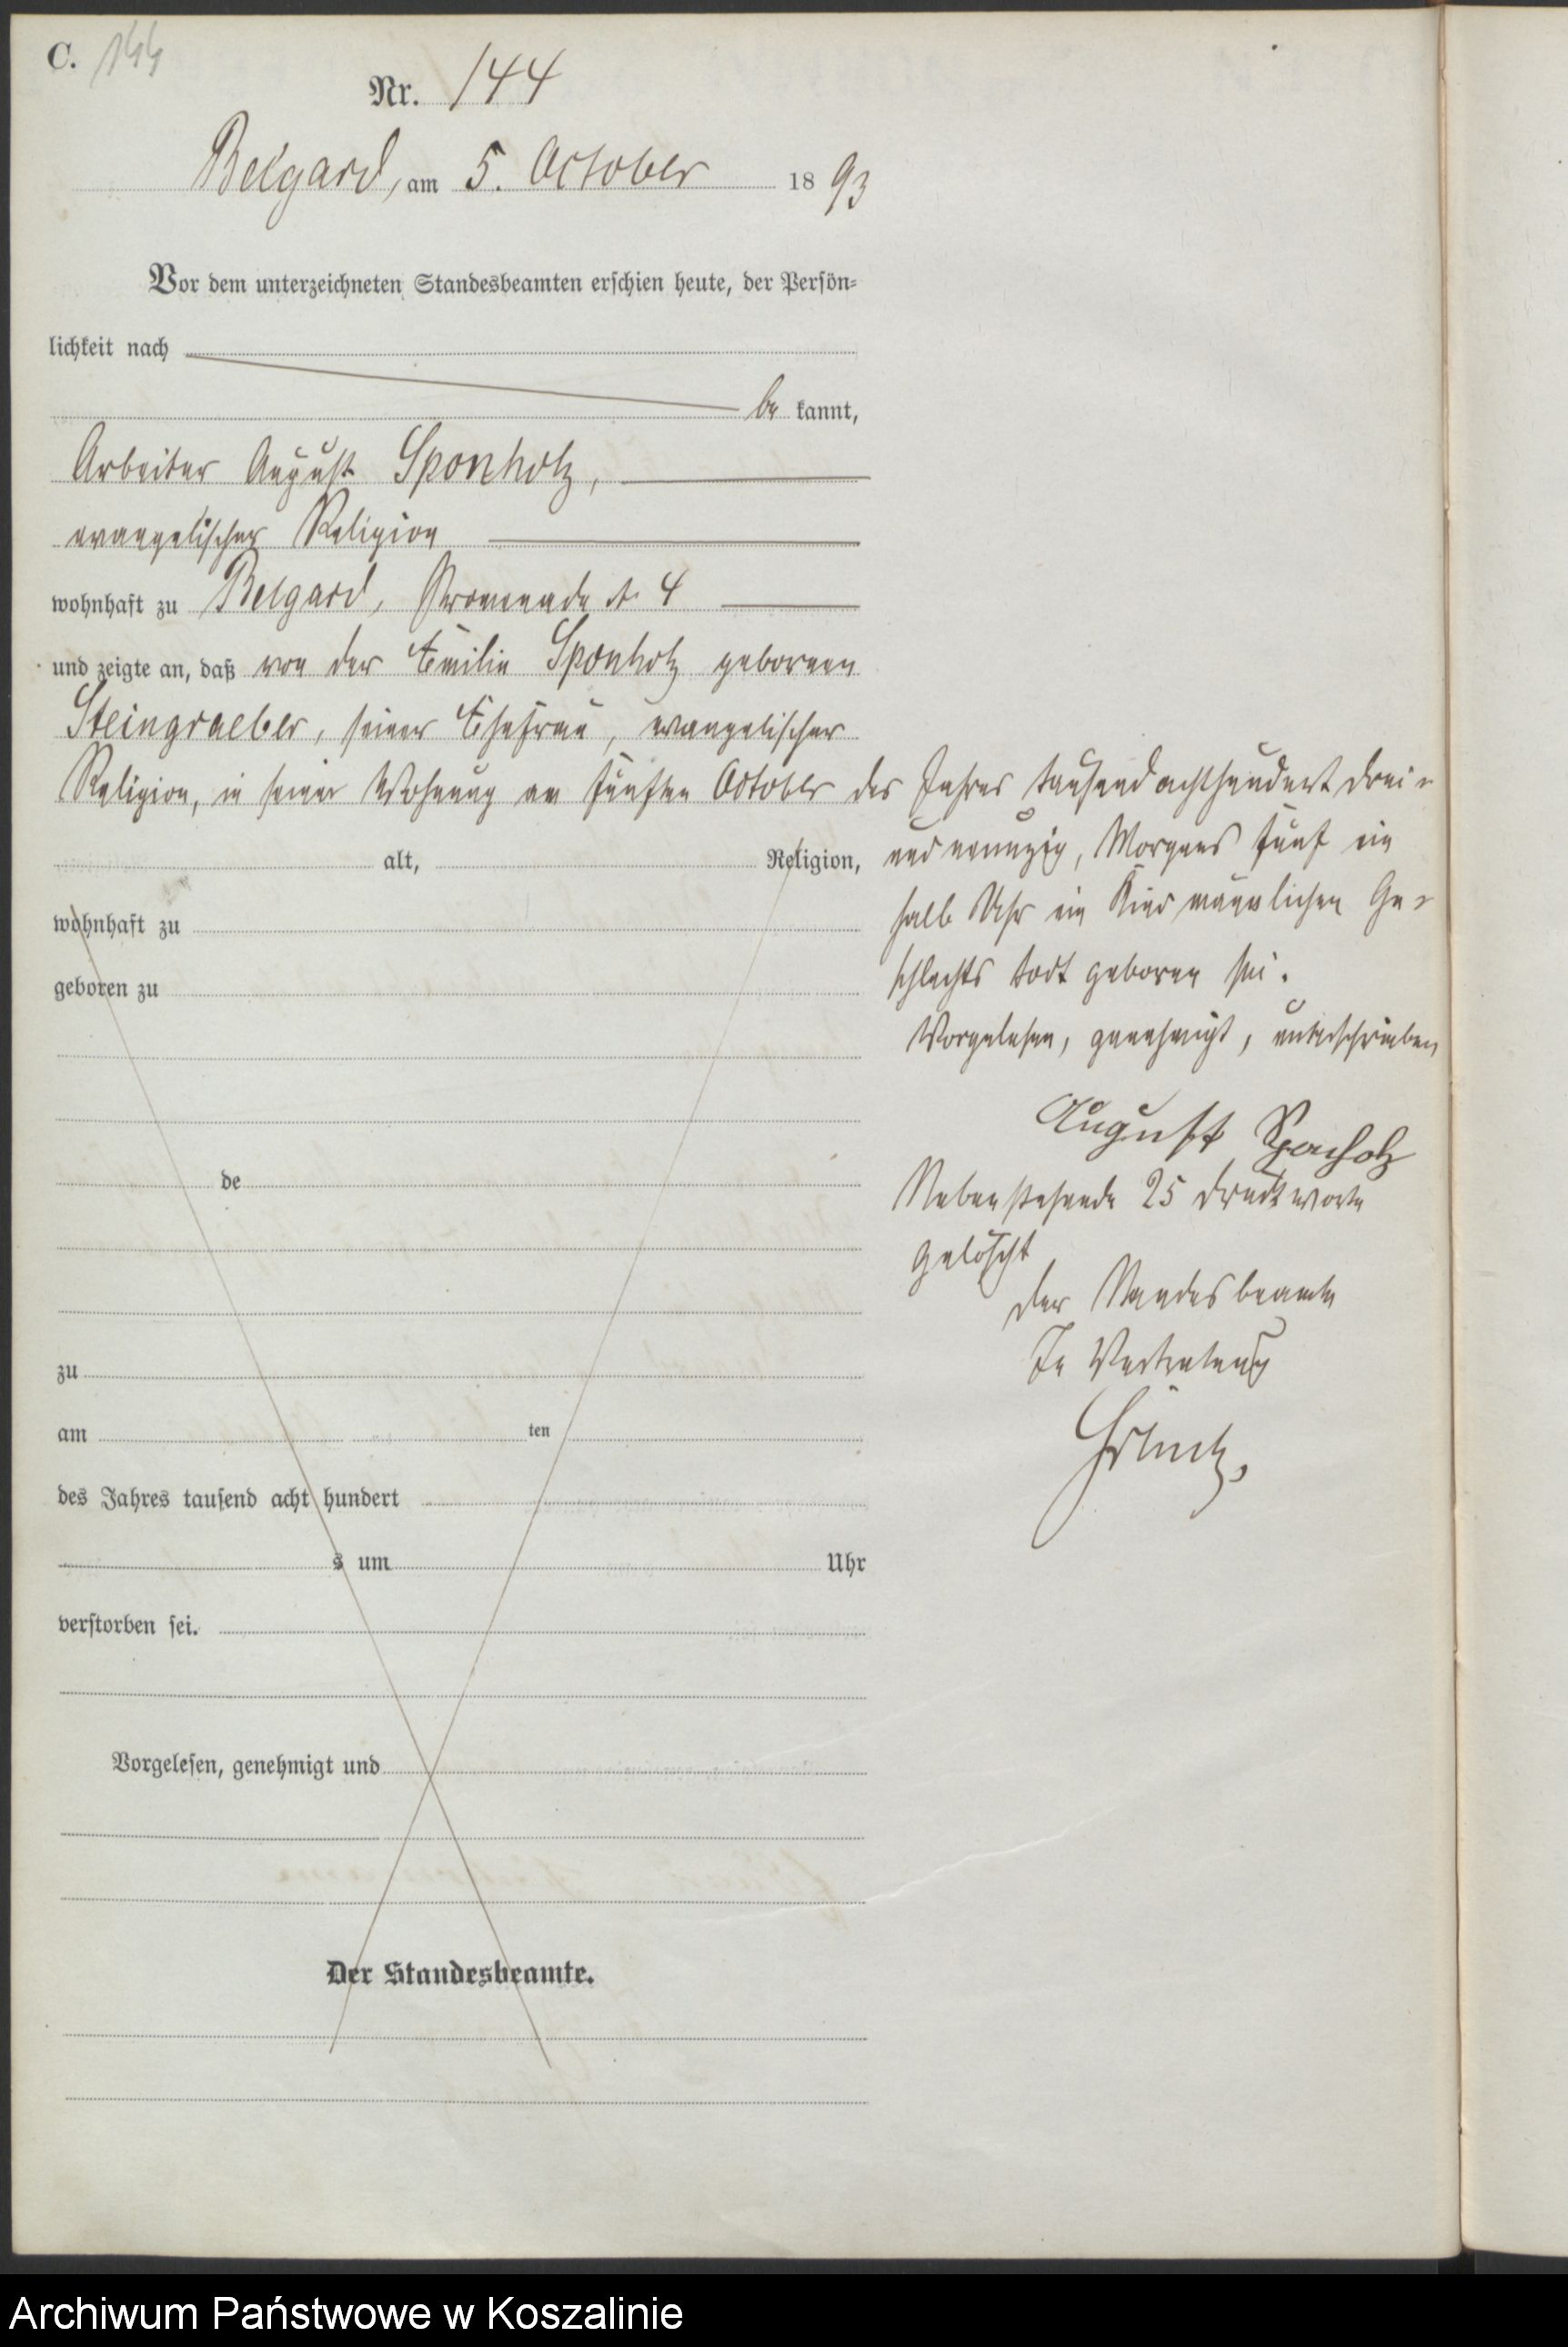 C. 144
Nr. 144
Belgard, am 5. October 1893
Vor dem unterzeichneten Standesbeamten erschien heute, der Persön-
lichkeit nach
bekannt,
Arbeiter August Sponholz,
evangelischer Religion
wohnhaft zu Belgard, Promenade No 4
und zeigte an, daß von der Emilie Sponholz geborenen
Steingraeber, seiner Ehefrau, evangelischer
Religion, in seiner Wohnung am fünften October des Jahres tausend achthundert drei-
und neunzig, Morgens fünf ein
halb Uhr ein Kind männlichen Ge-
schlechts todt geboren sei.
Vorgelesen, genehmigt, unterschrieben
August Sponholz
Nebenstehende 25 Druckworte
gelöscht
Der Standesbeamte
In Vertretung
alt, Religion,
wohnhaft zu
geboren zu
de
zu
am ten
des Jahres tausend acht hundert
s um Uhr
verstorben sei.
Vorgelesen, genehmigt und
Der Standesbeamte.
Archiwum Państwowe w Koszalinie